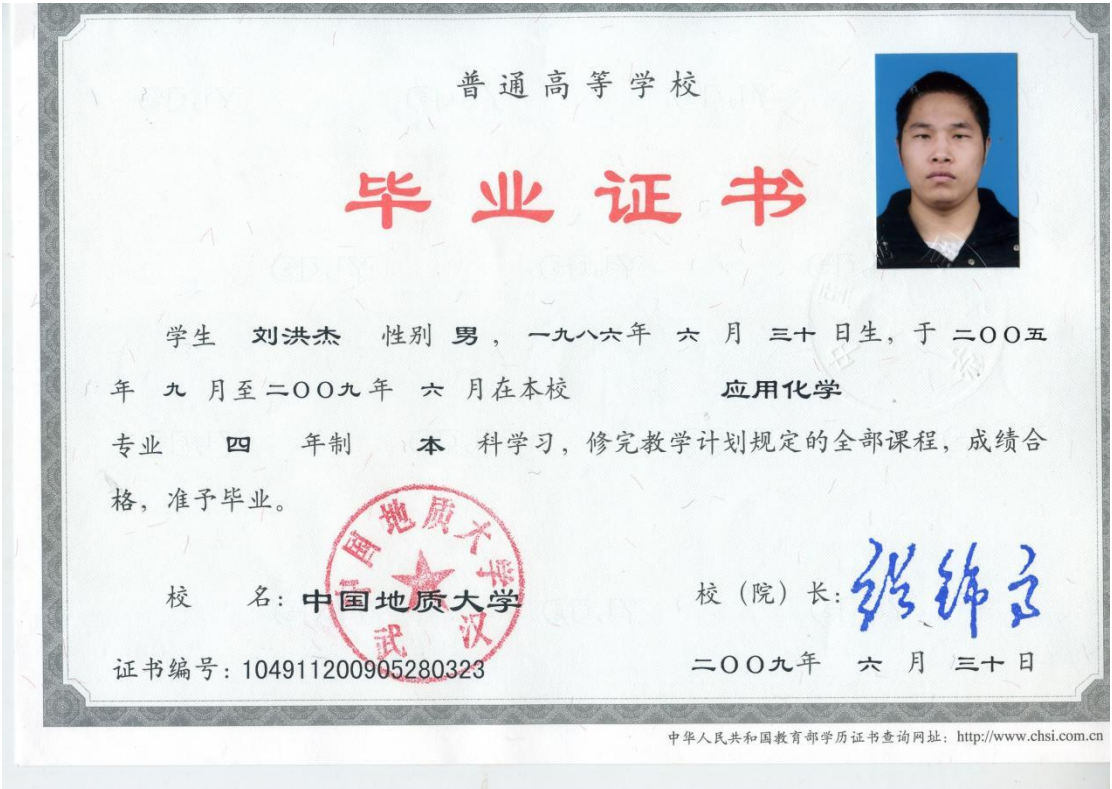 普通高等学校
毕业证书
学生 刘洪杰 性别 男，一九八六年 六 月 三十 日生，于 二〇〇五
年 九 月至二〇〇九年 六 月在本校 应用化学
专业 四 年制 本 科学习，修完教学计划规定的全部课程，成绩合
格，准予毕业。
中国地质大学
武汉
校 名：中国地质大学 校（院）长：张锦高
证书编号：104911200905280323 二〇〇九年 六 月 三十 日
中华人民共和国教育部学历证书查询网址：http://www.chsi.com.cn